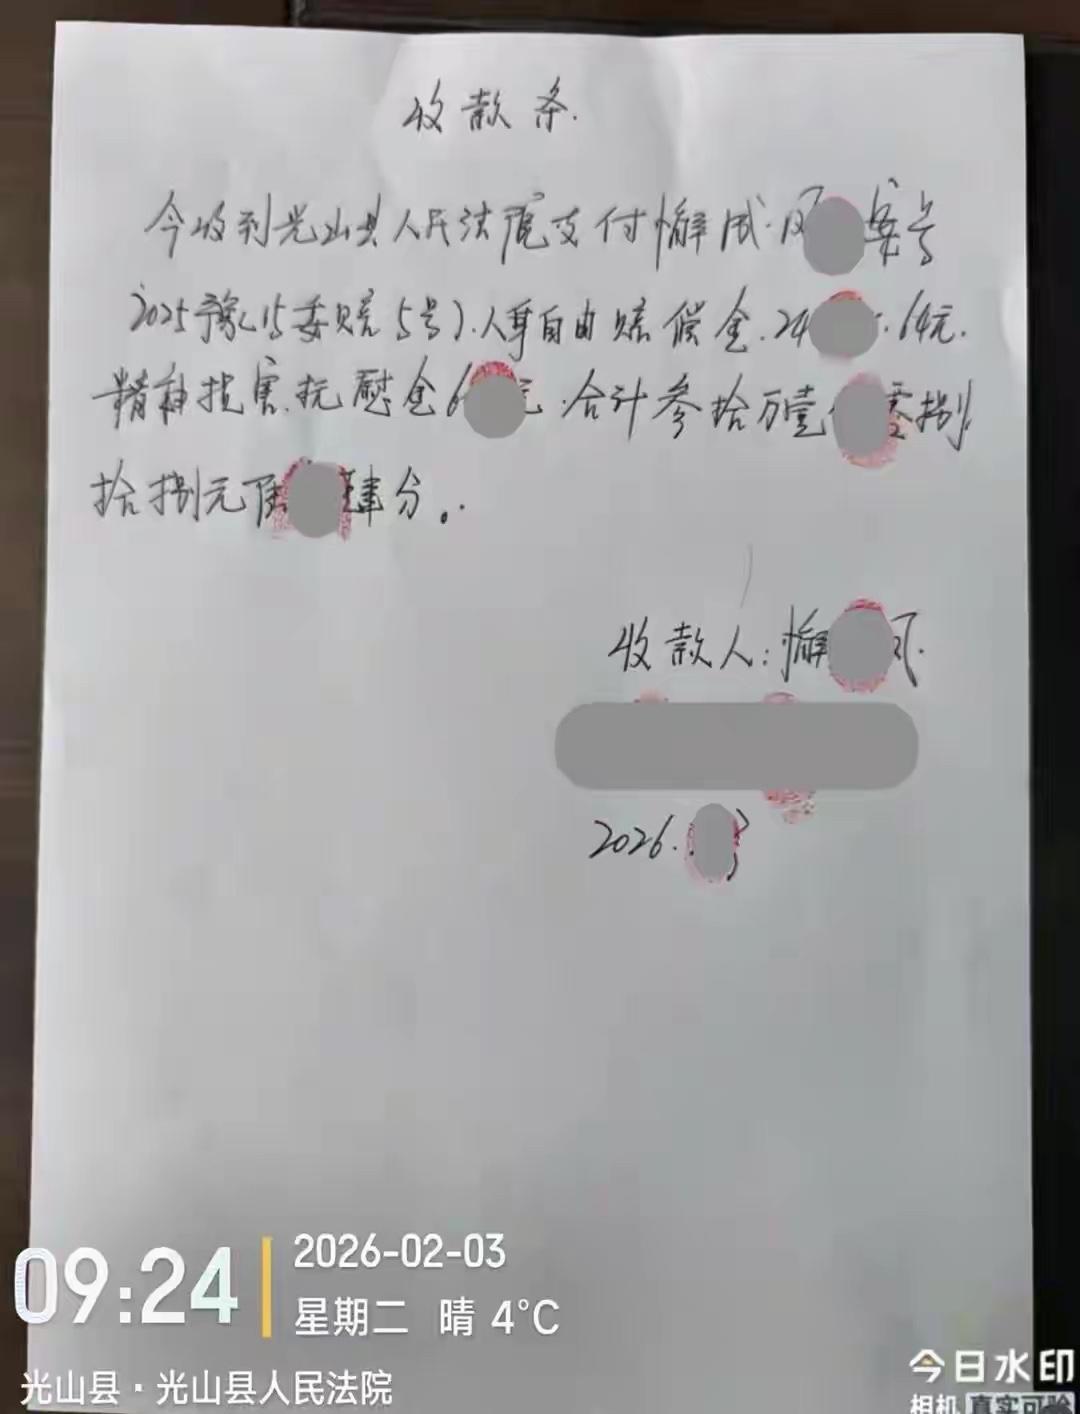 收款条.
今收到光山县人民法院支付懈成凤 案号
2025豫15委赔5号).人身自由赔偿金.24 .64元.
精神损害.抚慰金6 元.合计参拾万壹 零捌
拾捌元陆 肆分。.
收款人:懈 凤.
2026.
09:24
2026-02-03
星期二 晴 4°C
光山县·光山县人民法院
今日水印
相机 真实可验